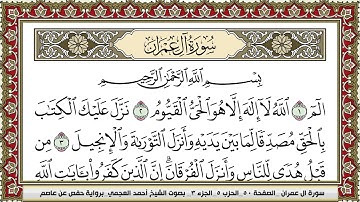 سُورَةُ آلِ عِمْرَانَ
بِسْمِ اللَّهِ الرَّحْمَٰنِ الرَّحِيمِ
الٓمٓ ١ ٱللَّهُ لَآ إِلَٰهَ إِلَّا هُوَ ٱلْحَىُّ ٱلْقَيُّومُ ٢ نَزَّلَ عَلَيْكَ ٱلْكِتَٰبَ
بِٱلْحَقِّ مُصَدِّقًا لِّمَا بَيْنَ يَدَيْهِ وَأَنزَلَ ٱلتَّوْرَىٰةَ وَٱلْإِنجِيلَ ٣ مِن
قَبْلُ هُدًى لِّلنَّاسِ وَأَنزَلَ ٱلْفُرْقَانَ إِنَّ ٱلَّذِينَ كَفَرُوا۟ بِـَٔايَٰتِ ٱللَّهِ
سورة آل عمران . الصفحة ٥٠ . الحزب ٥ . الجزء ٣ . بصوت الشيخ أحمد العجمي . برواية حفص عن عاصم